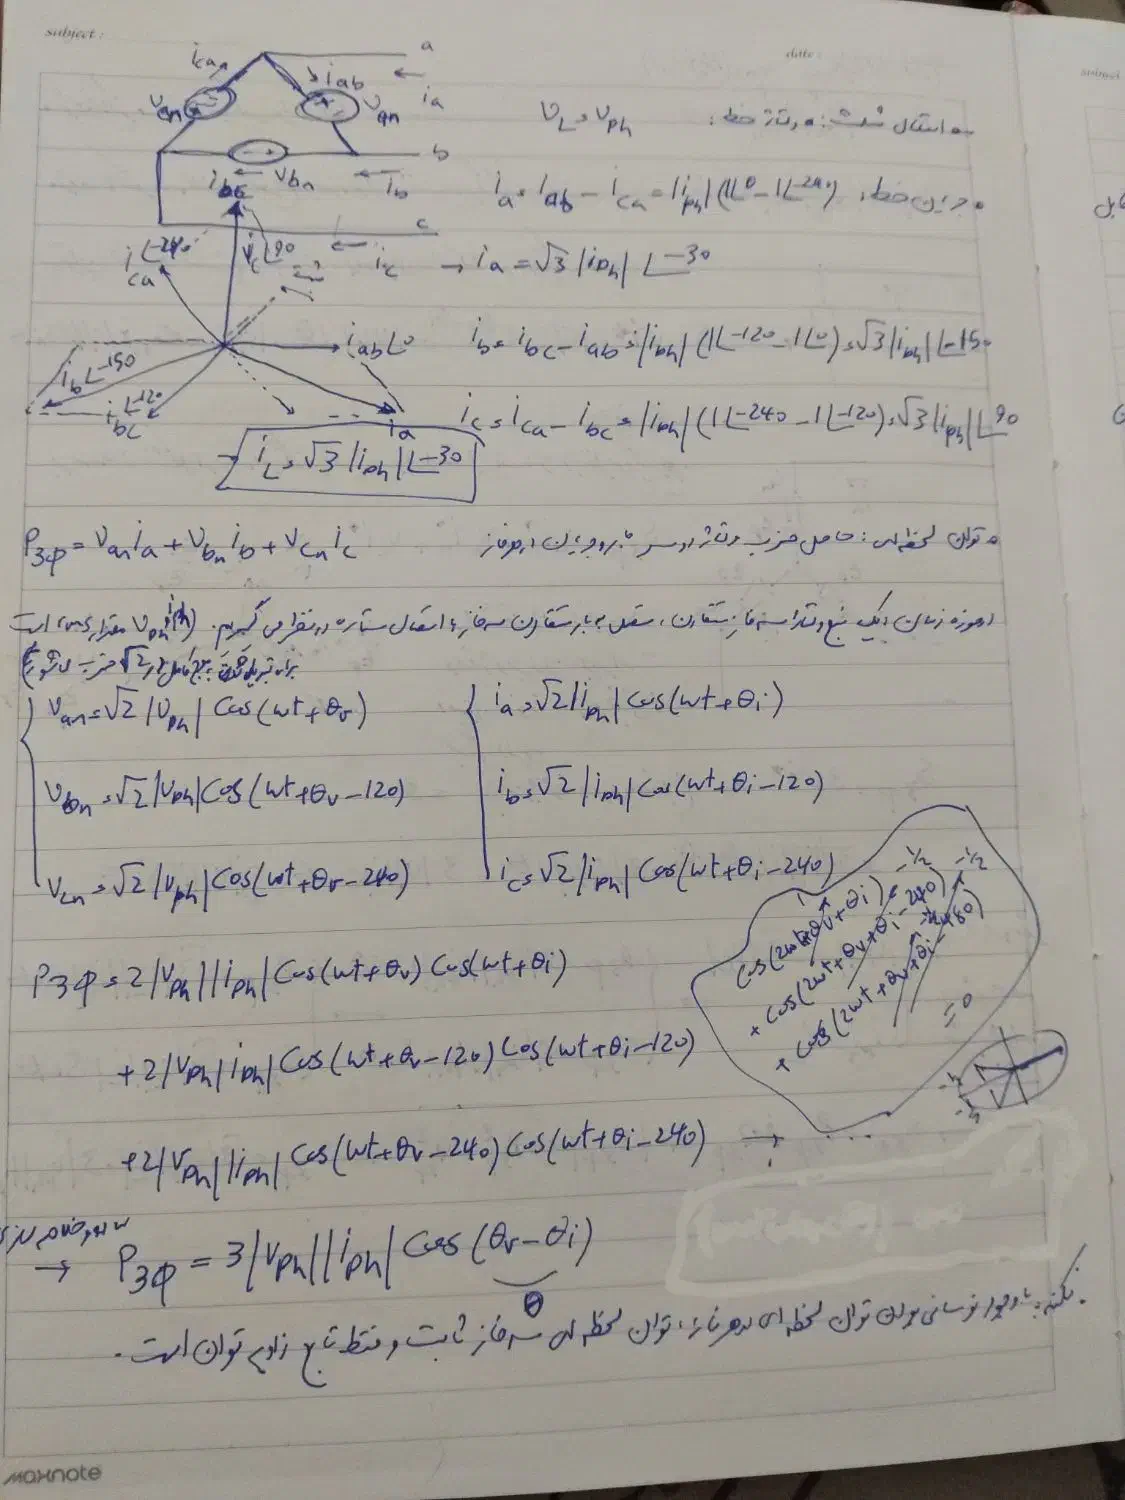 subject:
date:
a
i_ca
i_ab
i_a
v_an
v_an
b
v_bn
i_b
i_bc
c
i_c
اتصال مثلث: ولتاژ خط: V_L = V_ph
جریان خط: i_a = i_ab − i_ca = |i_ph| (1∠0 − 1∠−240)
→ i_a = √3 |i_ph| ∠−30
i_b = i_bc − i_ab = |i_ph| (1∠−120 − 1∠0) = √3 |i_ph| ∠−150
i_c = i_ca − i_bc = |i_ph| (1∠−240 − 1∠−120) = √3 |i_ph| ∠90
i_ca ∠−240
i_c ∠90
i_ab ∠0
i_b ∠−150
i_bc ∠−120
i_a
→ i_L = √3 |i_ph| ∠−30
توان لحظه‌ای: حاصل ضرب ولتاژ دو سر بار و جریان هر فاز
P_3φ = V_an i_a + V_bn i_b + V_cn i_c
در حوزه زمان یک منبع ولتاژ سه فاز متقارن، متصل به بار متقارن سه فاز با اتصال ستاره در نظر می گیریم. (V_ph, i_ph مقدار rms است
√2 ضرب می شود)
V_an = √2 |V_ph| cos(wt+θ_v)
i_a = √2 |i_ph| cos(wt+θ_i)
V_bn = √2 |V_ph| cos(wt+θ_v−120)
i_b = √2 |i_ph| cos(wt+θ_i−120)
V_cn = √2 |V_ph| cos(wt+θ_v−240)
i_c = √2 |i_ph| cos(wt+θ_i−240)
P_3φ = 2 |V_ph| |i_ph| cos(wt+θ_v) cos(wt+θ_i)
+2 |V_ph| |i_ph| cos(wt+θ_v−120) cos(wt+θ_i−120)
+2 |V_ph| |i_ph| cos(wt+θ_v−240) cos(wt+θ_i−240) → ...
1
−1/2
−1/2
cos(2wt+θ_v+θ_i)
+ cos(2wt+θ_v+θ_i−240)
+ cos(2wt+θ_v+θ_i−480)
= 0
→ P_3φ = 3 |V_ph| |i_ph| cos(θ_v − θ_i)
θ
نکته: با وجود نوسانی بودن توان لحظه ای در هر فاز، توان لحظه ای سه فاز ثابت و فقط تابع زاویه توان است.
maxnote